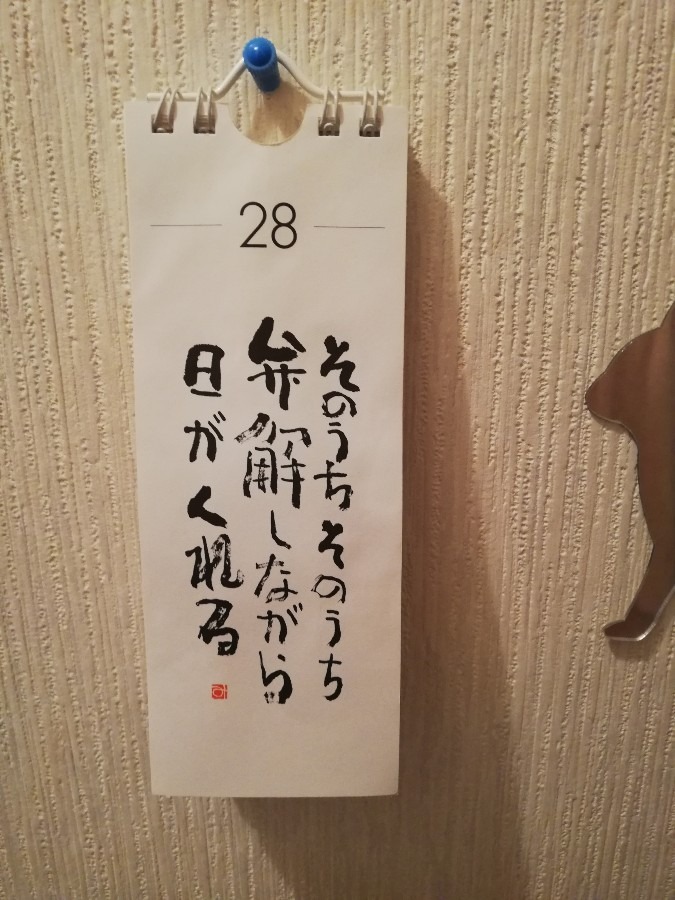 28
そのうちそのうち
弁解しながら
日がくれる